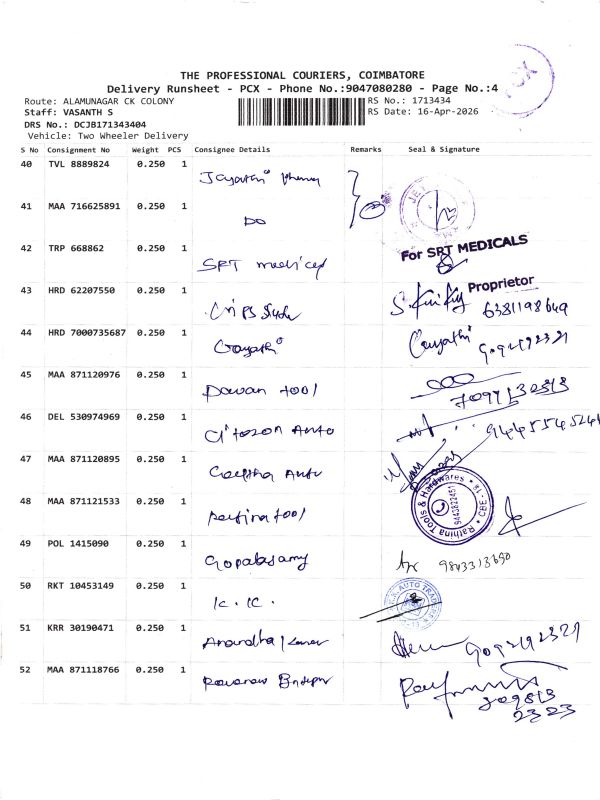 PCX
THE PROFESSIONAL COURIERS, COIMBATORE
Delivery Runsheet - PCX - Phone No.:9047080280 - Page No.:4
Route: ALAMUNAGAR CK COLONY
RS No.: 1713434
Staff: VASANTH S
RS Date: 16-Apr-2026
DRS No.: DCJB171343404
Vehicle: Two Wheeler Delivery
S No Consignment No Weight PCS Consignee Details Remarks Seal & Signature
40 TVL 8889824 0.250 1
41 MAA 716625891 0.250 1 DO
42 TRP 668862 0.250 1 SRT medical For SRT MEDICALS
Proprietor
43 HRD 62207550 0.250 1 6381198649
44 HRD 7000735687 0.250 1 Gayathi Gayathi 9092192321
45 MAA 871120976 0.250 1 Pawan tool 7097132313
46 DEL 530974969 0.250 1 Auto
47 MAA 871120895 0.250 1 Auto
48 MAA 871121533 0.250 1 tool Rathina Tools & Hardwares CBE-18 9443822451
49 POL 1415090 0.250 1 Gopalasamy 9843313690
50 RKT 10453149 0.250 1 K. K. AUTO
51 KRR 30190471 0.250 1 9092192321
52 MAA 871118766 0.250 1
2323